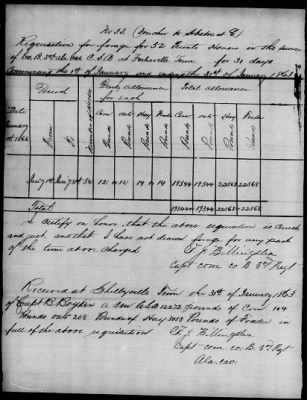 No 32 (Voucher to Abstract E)
Requisition for forage for 52 Private Horses in the service
of Co. B. 3rd Ala Cav C.S.A at Tenn for 30 days
Commencing the 1st of January and ending the 31st of January 1863
Date Period Number of Horses Daily allowance for each Total allowance
From To Corn oats Hay Fodder Corn oats Hay Fodder
Pounds Pounds Pounds Pounds Pounds Pounds Pounds
Jany 1st Jany 31st 52 12 12 14 14 19344 19344 22568 22568
Total 19344 19344 22568 22568
I certify on honor, that the above requisition is correct
and just, and that I have not drawn forage for any part
of the time above charged
Capt com co B 3rd Regt
Received at Shelbyville Tenn the 31st of January 1863
of Capt B. 12272 pounds of Corn 104
Pounds oats 208 Pounds of Hay Pounds of Fodder in
full of the above requisition
Capt com co. B. 3rd Regt
Ala. Cav